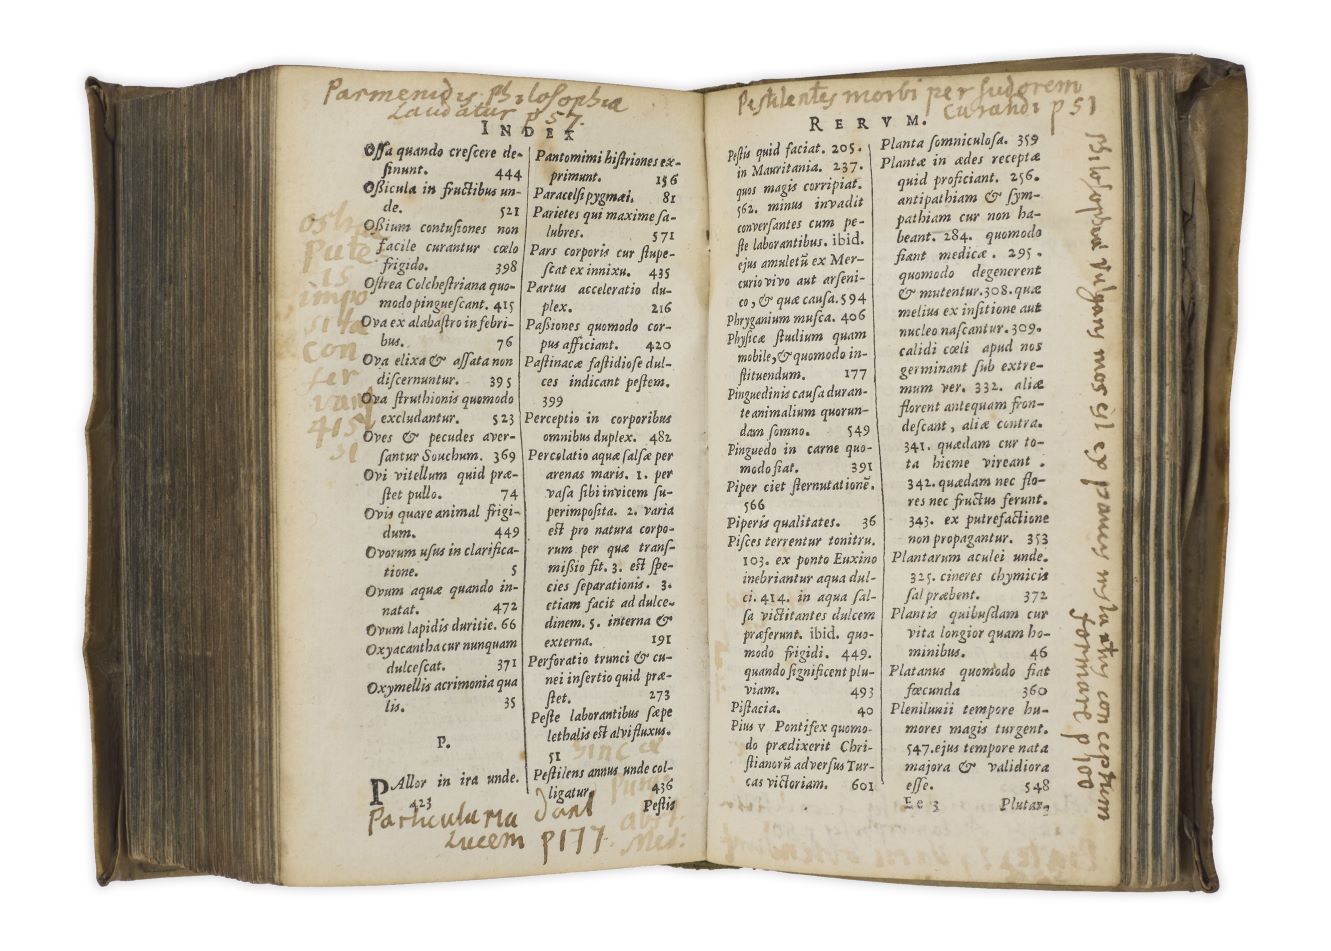 Parmenidis philosophia
Laudatur p 57.
INDEX
Ossa quando crescere de-
sinunt. 444
Ossicula in fructibus un-
de. 521
Ossium contusiones non
facile curantur cœlo
frigido. 398
Ostrea Colchestriana quo-
modo pinguescant. 415
Ova ex alabastro in febri-
bus. 76
Ova elixa & assata non
discernuntur. 395
Ova struthionis quomodo
excludantur. 523
Oves & pecudes aver-
santur Souchum. 369
Ovi vitellum quid præ-
stet pullo. 74
Ovis quare animal frigi-
dum. 449
Ovorum usus in clarifica-
tione. 5
Ovum aquæ quando in-
natat. 472
Ovum lapidis duritie. 66
Oxyacantha cur nunquam
dulcescat. 371
Oxymellis acrimonia qua
lis. 35
P.
PAllor in ira unde.
423
Pantomimi histriones ex-
primunt. 156
Paracelsi pygmæi. 81
Parietes qui maxime sa-
lubres. 571
Pars corporis cur stupe-
scat ex innixu. 435
Partus acceleratio du-
plex. 216
Passiones quomodo cor-
pus afficiant. 420
Pastinacæ fastidiose dul-
ces indicant pestem.
399
Perceptio in corporibus
omnibus duplex. 482
Percolatio aquæ salsæ per
arenas maris. 1. per
vasa sibi invicem su-
perimposita. 2. varia
est pro natura corpo-
rum per quæ trans-
missio fit. 3. est spe-
cies separationis. 3.
etiam facit ad dulce-
dinem. 5. interna &
externa. 191
Perforatio trunci & cu-
nei insertio quid præ-
stet. 273
Peste laborantibus sæpe
lethalis est alvi fluxus.
51
Pestilens annus unde col-
ligatur. 436
Pestis
Particularia dant
Lucem p 177.
Pestilentes morbi per sudorem
curandi p 51
RERVM.
Pestis quid faciat. 205.
in Mauritania. 237.
quos magis corripiat.
562. minus invadit
conversantes cum pe-
ste laborantibus. ibid.
ejus amuletũ ex Mer-
curio vivo aut arseni-
co, & quæ causa. 594
Phryganium musca. 406
Physicæ studium quam
mobile, & quomodo in-
stituendum. 177
Pinguedinis causa duran-
te animalium quorun-
dam somno. 549
Pinguedo in carne quo-
modo fiat. 391
Piper ciet sternutationẽ.
566
Piperis qualitates. 36
Pisces terrentur tonitru.
103. ex ponto Euxino
inebriantur aqua dul-
ci. 414. in aqua sal-
sa victitantes dulcem
præferunt. ibid. quo-
modo frigidi. 449.
quando significent plu-
viam. 493
Pistacia. 40
Pius V Pontifex quomo-
do prædixerit Chri-
stianorũ adversus Tur-
cas victoriam. 601
Planta somniculosa. 359
Plantæ in ædes receptæ
quid proficiant. 256.
antipathiam & sym-
pathiam cur non ha-
beant. 284. quomodo
fiant medicæ. 295.
quomodo degenerent
& mutentur. 308. quæ
melius ex insitione aut
nucleo nascantur. 309.
calidi cœli apud nos
germinant sub extre-
mum ver. 332. aliæ
florent antequam fron-
descant, aliæ contra.
341. quædam cur to-
ta hieme vireant.
342. quædam nec flo-
res nec fructus ferunt.
343. ex putrefactione
non propagantur. 353
Plantarum aculei unde.
325. cineres chymicis
sal præbent. 372
Plantis quibusdam cur
vita longior quam ho-
minibus. 46
Platanus quomodo fiat
fœcunda 360
Plenilunii tempore hu-
mores magis turgent.
547. ejus tempore nata
majora & validiora
esse. 548
Ee 3 Plutar,